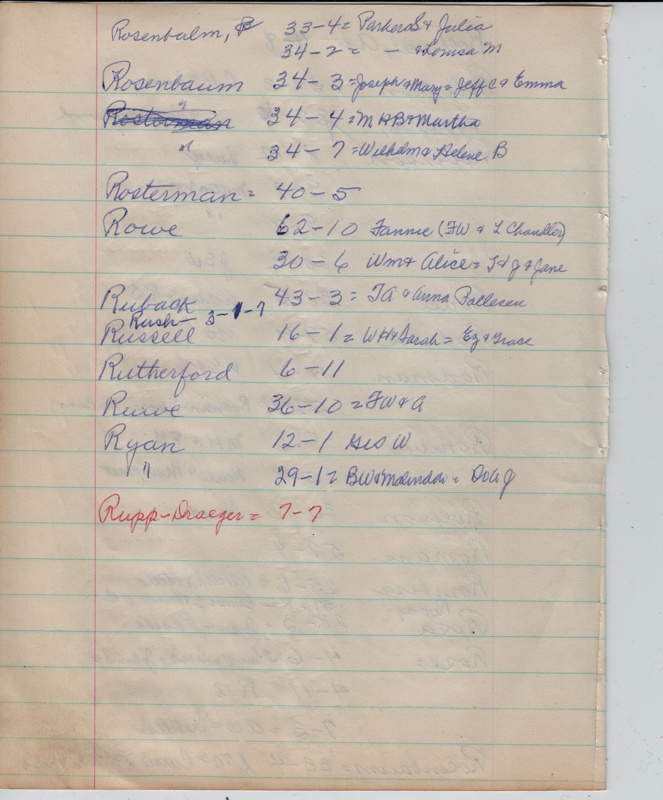 Rosenbalm, P 33-4 = Parker S & Julia
34-2 = - & Louisa M
Rosenbaum 34-3 = Joseph & Mary = Jeff C & Emma
" 34-4 = M & B & Martha
" 34-7 = Wilhelm & Helene B
Rosterman = 40-5
Rowe 62-10 Fannie (FW & L Chandler)
30-6 Wm & Alice = I & J & Jane
Ruback 43-3 = JA & Anna Pallesen
Rush - 3-1-7
Russell 16-1 = WH & Sarah = Ez & Grace
Rutherford 6-11
Ruwe 36-10 = FW & A
Ryan 12-1 Geo W
" 29-1 = BW & Malindda = Do & J
Rupp-Draeger = 7-7